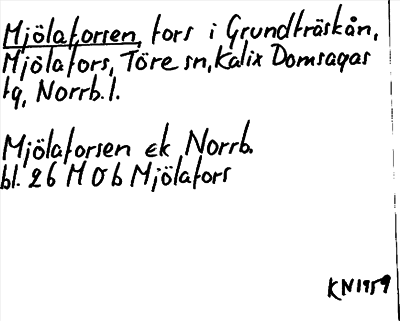 Mjölaforsen, fors i Grundträskån,
Mjölafors, Töre sn, Kalix Domsagas
tg, Norrb. l.
Mjölaforsen ek Norrb.
bl. 26 M O b Mjölafors
KN 1959